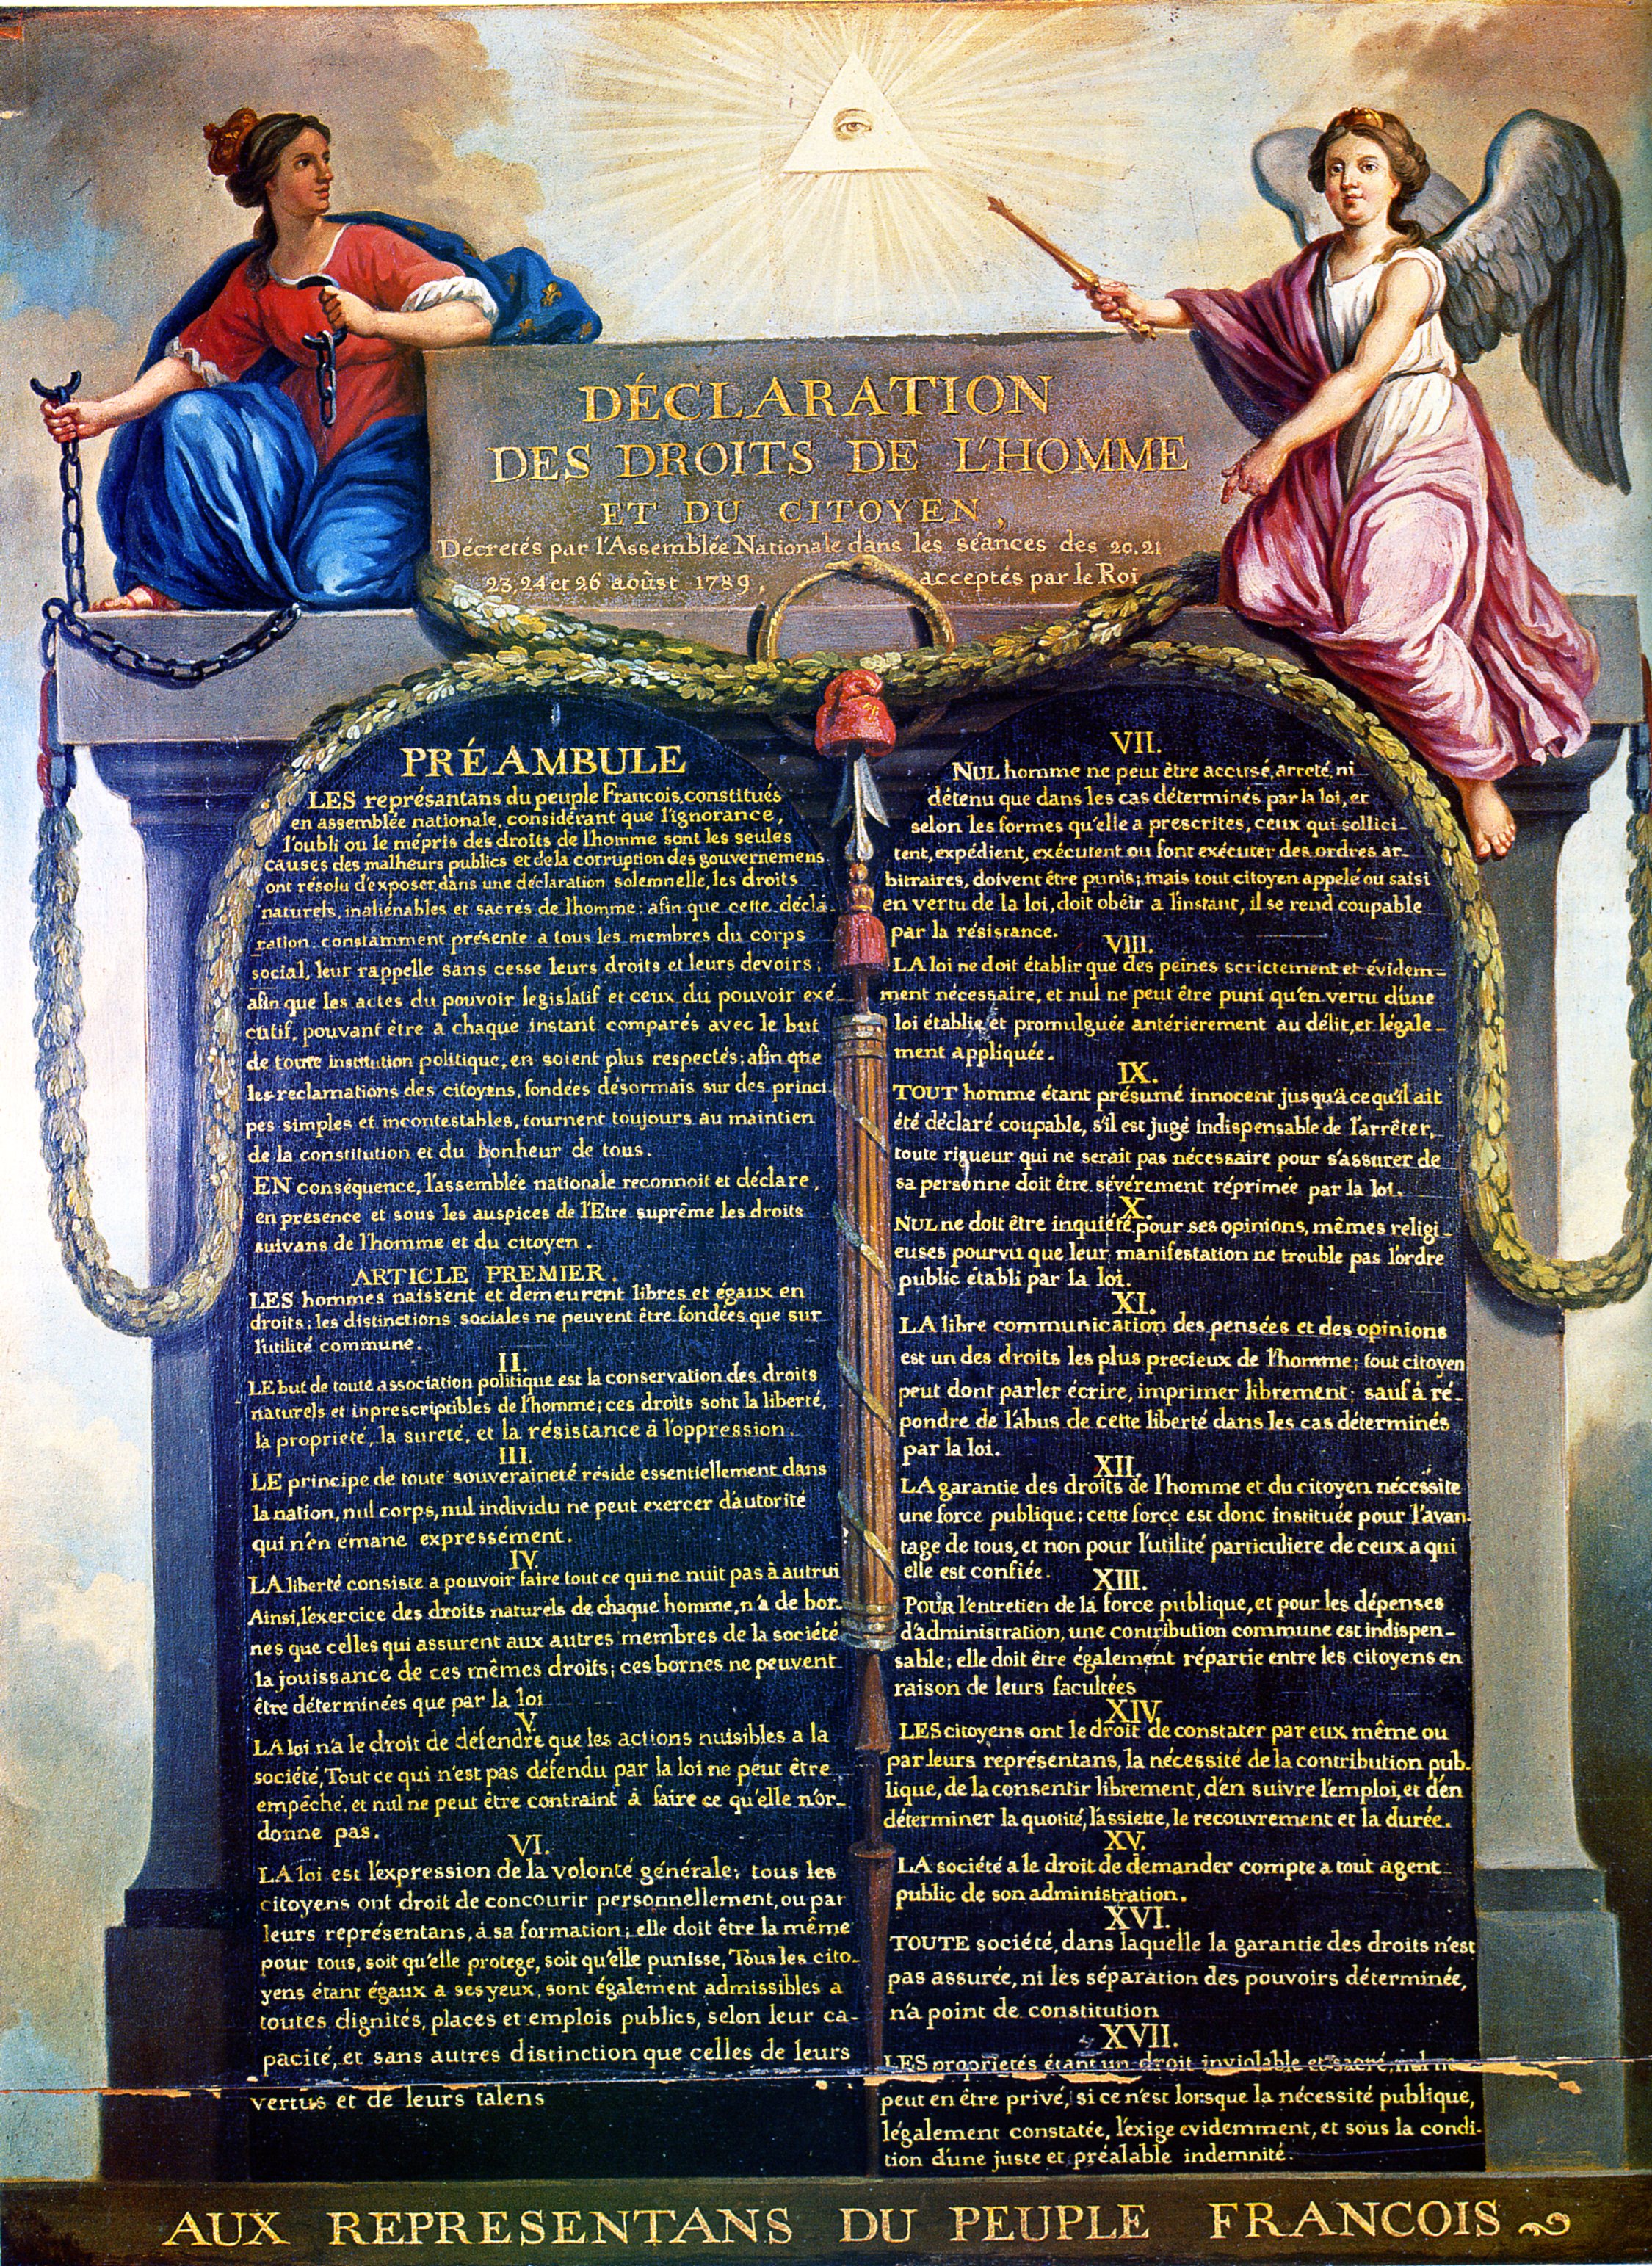 DÉCLARATION
DES DROITS DE L'HOMME
ET DU CITOYEN,
Décretés par l'Assemblée Nationale dans les séances des 20.21
23,24 et 26 aoûst 1789, acceptés par le Roi
PRÉAMBULE
LES représantans du peuple Francois, constitués
en assemblée nationale, considérant que l'ignorance,
l'oubli ou le mépris des droits de l'homme sont les seules
causes des malheurs publics et de la corruption des gouvernemens
ont résolu d'exposer dans une déclaration solemnelle, les droits
naturels, inaliénables et sacrés de l'homme: afin que cette décla-
ration constamment présente a tous les membres du corps
social, leur rappelle sans cesse leurs droits et leurs devoirs;
afin que les actes du pouvoir legislatif et ceux du pouvoir exé-
cutif, pouvant être a chaque instant comparés avec le but
de toute institution politique, en soient plus respectés; afin que
les reclamations des citoyens, fondées désormais sur des princi
pes simples et incontestables, tournent toujours au maintien
de la constitution et du bonheur de tous.
EN conséquence, l'assemblée nationale reconnoit et déclare,
en presence et sous les auspices de l'Etre suprême les droits
suivans de l'homme et du citoyen.
ARTICLE PREMIER.
LES hommes naissent et demeurent libres et égaux en
droits; les distinctions sociales ne peuvent être fondées que sur
l'utilité commune.
II.
LE but de toute association politique est la conservation des droits
naturels et inprescriptibles de l'homme; ces droits sont la liberté,
la propriété, la sureté, et la résistance à l'oppression.
III.
LE principe de toute souveraineté réside essentiellement dans
la nation, nul corps, nul individu ne peut exercer d'autorité
qui n'en émane expressément.
IV.
LA liberté consiste a pouvoir faire tout ce qui ne nuit pas à autrui
Ainsi, l'exercice des droits naturels de chaque homme, n'a de bor-
nes que celles qui assurent aux autres membres de la société
la jouissance de ces mêmes droits; ces bornes ne peuvent
être déterminées que par la loi
V.
LA loi n'a le droit de défendre que les actions nuisibles a la
société, Tout ce qui n'est pas défendu par la loi ne peut être
empêché, et nul ne peut être contraint à faire ce qu'elle n'or-
donne pas.
VI.
LA loi est l'expression de la volonté générale; tous les
citoyens ont droit de concourir personnellement, ou par
leurs représentans, à sa formation; elle doit être la même
pour tous, soit qu'elle protege, soit qu'elle punisse, Tous les cito-
yens étant égaux a ses yeux, sont également admissibles a
toutes dignités, places et emplois publics, selon leur ca-
pacité, et sans autres distinction que celles de leurs
vertus et de leurs talens
VII.
NUL homme ne peut être accusé, arreté, ni
détenu que dans les cas déterminés par la loi, et
selon les formes qu'elle a prescrites, ceux qui sollici-
tent, expédient, exécutent ou font exécuter des ordres ar-
bitraires, doivent être punis; mais tout citoyen appelé ou saisi
en vertu de la loi, doit obéir a l'instant, il se rend coupable
par la résistance.
VIII.
LA loi ne doit établir que des peines scrictement et évidem-
ment nécessaire, et nul ne peut être puni qu'en vertu d'une
loi établie et promulguée antérierement au délit, et légale-
ment appliquée.
IX.
TOUT homme étant présumé innocent jusqu'à ce qu'il ait
été déclaré coupable, s'il est jugé indispensable de l'arrêter,
toute rigueur qui ne serait pas nécessaire pour s'assurer de
sa personne doit être sévérement réprimée par la loi.
X.
NUL ne doit être inquiété pour ses opinions, mêmes religi-
euses pourvu que leur manifestation ne trouble pas l'ordre
public établi par la loi.
XI.
LA libre communication des pensées et des opinions
est un des droits les plus precieux de l'homme; tout citoyen
peut dont parler écrire, imprimer librement: sauf à ré-
pondre de l'abus de cette liberté dans les cas déterminés
par la loi.
XII.
LA garantie des droits de l'homme et du citoyen nécessite
une force publique; cette force est donc instituée pour l'avan-
tage de tous, et non pour l'utilité particuliere de ceux a qui
elle est confiée.
XIII.
POUR l'entretien de la force publique, et pour les dépenses
d'administration, une contribution commune est indispen-
sable; elle doit être également répartie entre les citoyens en
raison de leurs facultées
XIV.
LES citoyens ont le droit de constater par eux même ou
par leurs représentans, la nécessité de la contribution pub-
lique, de la consentir librement, d'en suivre l'emploi, et d'en
déterminer la quotité, l'assiette, le recouvrement et la durée.
XV.
LA société a le droit de demander compte a tout agent
public de son administration.
XVI.
TOUTE société, dans laquelle la garantie des droits n'est
pas assurée, ni les séparation des pouvoirs déterminée,
n'a point de constitution
XVII.
LES proprietés étant un droit inviolable et sacré, nul ne
peut en être privé, si ce n'est lorsque la nécessité publique,
légalement constatée, l'exige evidemment, et sous la condi-
tion d'une juste et préalable indemnité.
AUX REPRESENTANS DU PEUPLE FRANCOIS